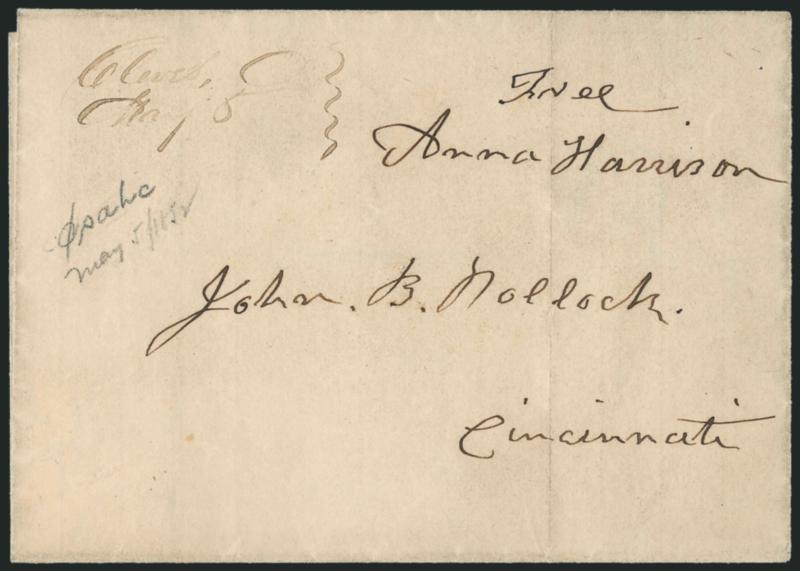 Cleves, O
May 5
Free
Anna Harrison
May 5/1852
John. B. Pollock.
Cincinnati